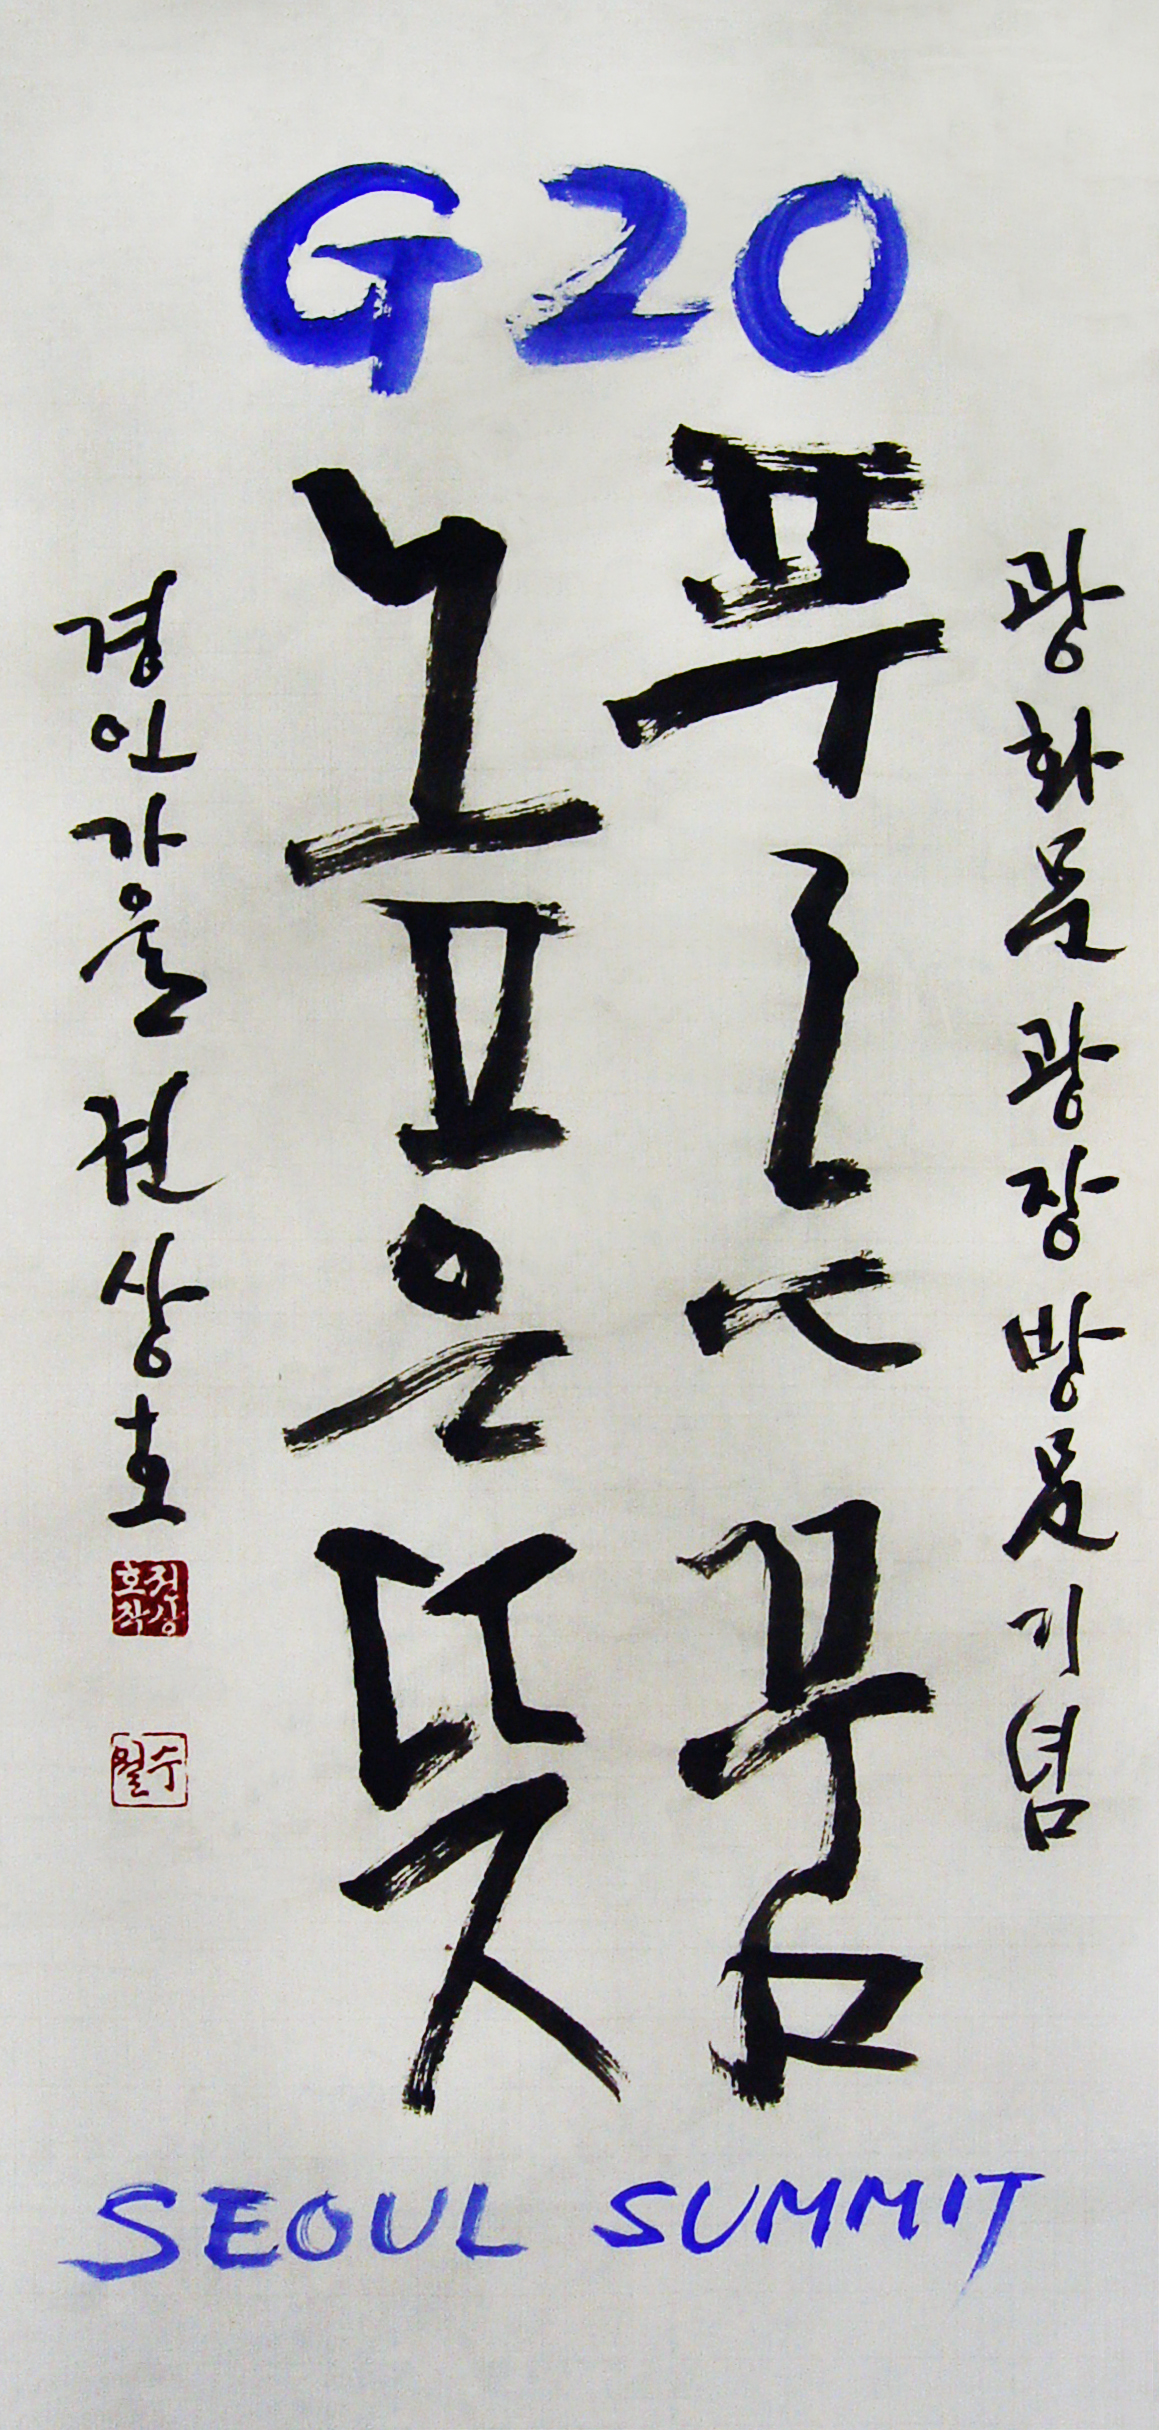 G20
광화문 광장 방문 기념
푸른 꿈
높은 뜻
경인 가을 권상호
권상호작
수월
SEOUL SUMMIT